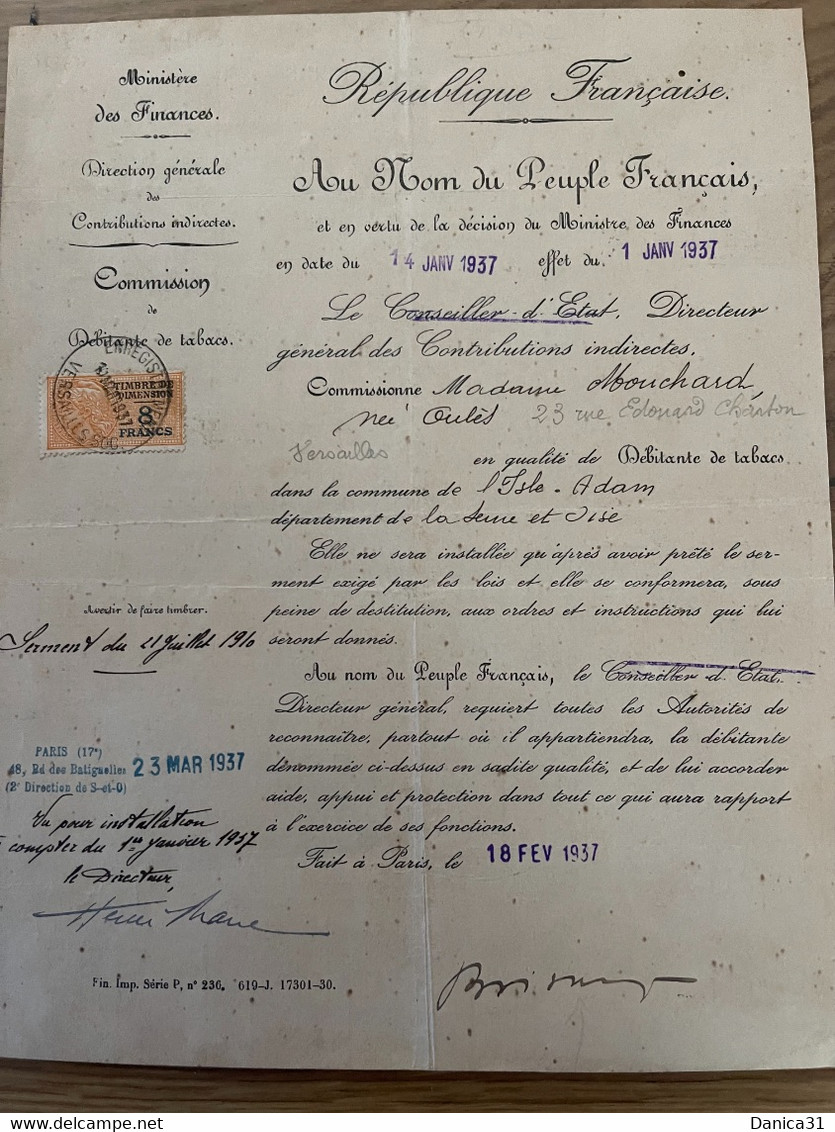 Ministère
des Finances.
Direction générale
des
Contributions indirectes.
Commission
de
Débitante de tabacs.
ENREGISTREMENT
1937
VERSAILLES
TIMBRE DE
DIMENSION
8
FRANCS
Avertir de faire timbrer.
Serment du 21 juillet 1910
PARIS (17e)
48, Bd des Batignolles
(2e Direction de S-et-O)
23 MAR 1937
Vu pour installation
à compter du 1er janvier 1937
le Directeur,
Fin. Imp. Série P, n° 236. 619-J. 17301-30.
République Française.
Au Nom du Peuple Français,
et en vertu de la décision du Ministre des Finances
en date du 14 JANV 1937 effet du 1 JANV 1937
Le Conseiller d'Etat, Directeur
général des Contributions indirectes,
Commissionne Madame Mouchard,
née Oulès 23 rue Edouard Charton
Versailles en qualité de Débitante de tabacs
dans la commune de l'Isle-Adam
département de la Seine et Oise
Elle ne sera installée qu'après avoir prêté le ser-
ment exigé par les lois et elle se conformera, sous
peine de destitution, aux ordres et instructions qui lui
seront donnés.
Au nom du Peuple Français, le Conseiller d'Etat,
Directeur général, requiert toutes les Autorités de
reconnaître, partout où il appartiendra, la débitante
dénommée ci-dessus en sadite qualité, et de lui accorder
aide, appui et protection dans tout ce qui aura rapport
à l'exercice de ses fonctions.
Fait à Paris, le 18 FEV 1937
Danica31